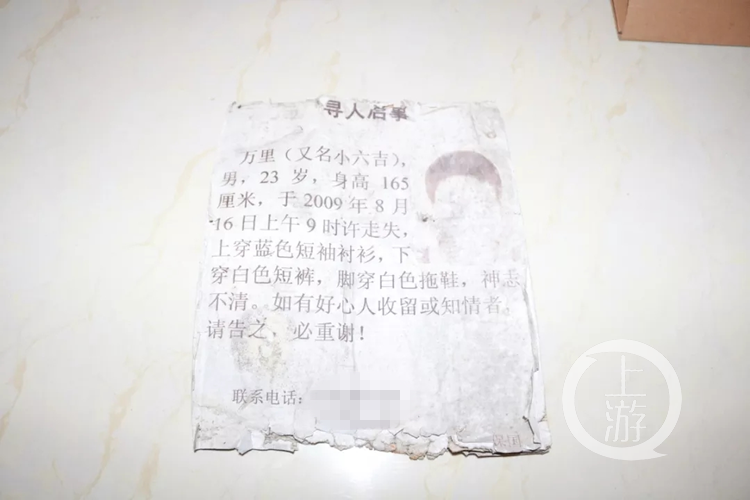 寻人启事
万里（又名小六吉），
男，23 岁，身高 165
厘米，于 2009 年 8 月
16 日上午 9 时许走失，
上穿蓝色短袖衬衫，下
穿白色短裤，脚穿白色拖鞋，神志
不清。如有好心人收留或知情者，
请告之，必重谢！
联系电话：
上游